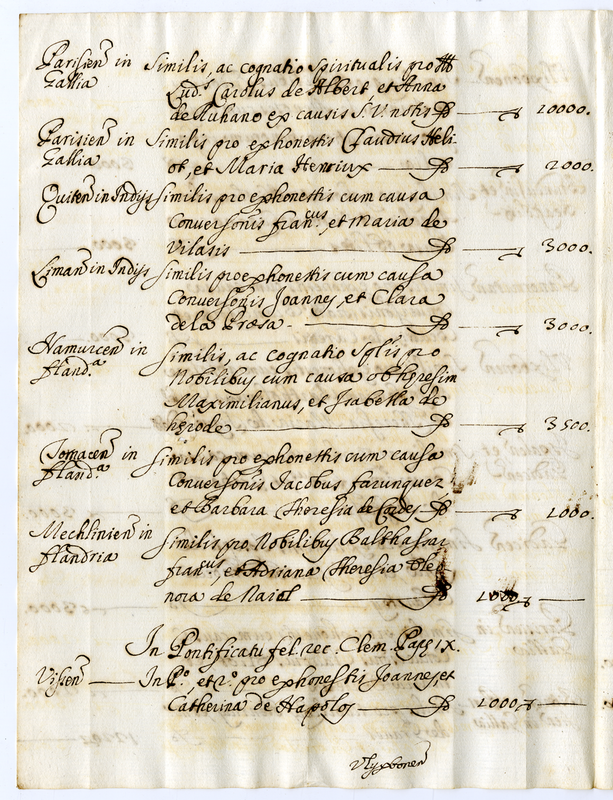 Parisien in Similis, ac cognatio Spiritualis pro Ill
Gallia Lud.s Carolus de Albert, et Anna
de Ruhano ex causis S. V. notis 10000.
Parisien in Similis pro exhonestis Claudius Heli-
Gallia ot, et Maria Henriux 2000.
Quiten in Indijs Similis pro exhonestis cum causa
Conversonis Fran.cus, et Maria de
Vilasis 3000.
Liman in Indijs Similis pro exhonestis cum causa
Conversonis Joannes, et Clara
de la Præsa 3000.
Namurcen in Similis, ac cognatio Splis pro
fland.a Nobilibus cum causa ob hæresim
Maximilianus, et Isabella de
hérode 3500.
Tornacen in Similis pro exhonestis cum causa
fland.a Conversonis Jacobus farunquez
et Barbara Theresia de Cordes 1000.
Mechlinien in Similis, pro Nobilibus Balthassar
flandria fran.cus, et Adriana Theresia Ele
nora de Naiol 1000
In Pontificatu fel. rec. Clem. Papæ IX.
Vissen In P.o, et 2.o pro exhonestis Joannes, et
Catherina de Napolos 1000
Vlyxbonen